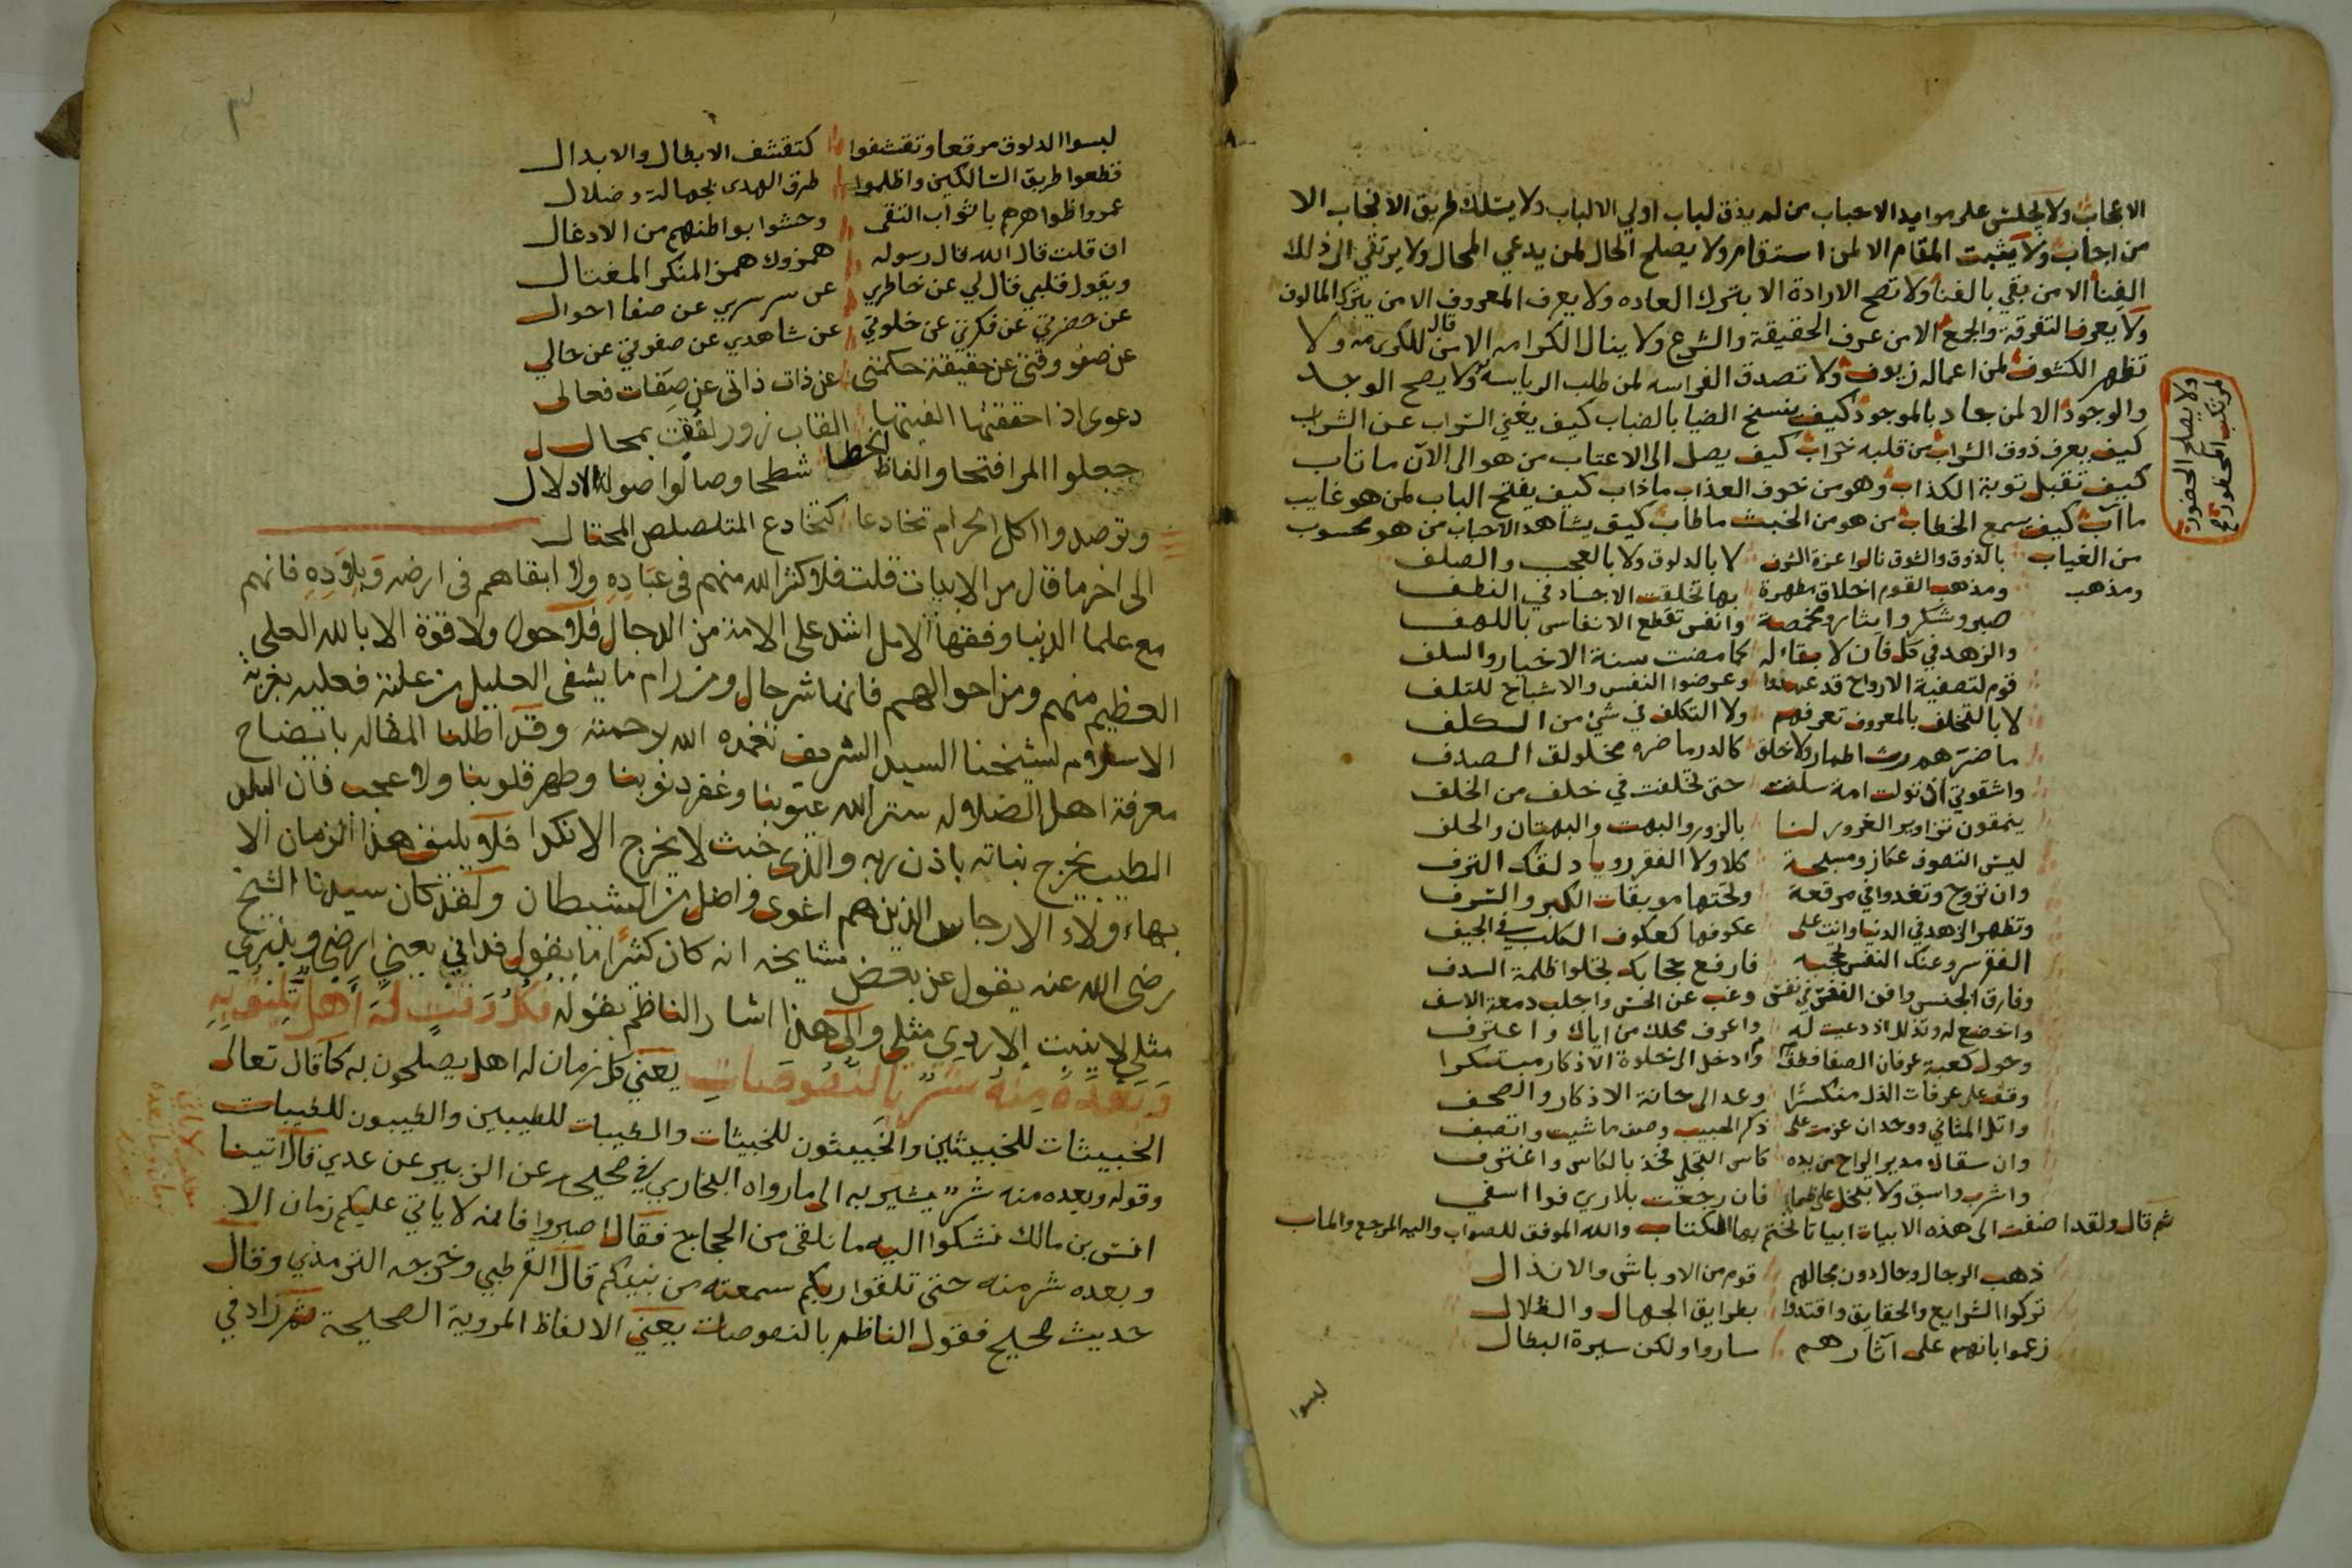 الانجاب ولا يجلس على موايد الاحباب من لم يذق لباب اولي الالباب ولا يسلك طريق الانجاب الا
من اجاب ولا يثبت المقام الا لمن استقام ولا يصلح الحال لمن يدعي المحال ولا يرتقي الى ذلك
الفنا الا من بقي بالفنا ولا تصح الارادة الا بترك العاده ولا يعرف المعروف الا من يترك المالوف
ولا يعرف التفرقة والجمع الا من عرف الحقيقة والشرع ولا ينال الكرامه الا من قال للكرى مه ولا
تظهر الكشوف لمن اعماله زيوف ولا تصدق الفراسه لمن طلب الرياسه ولا يصح الوجد
والوجود الا لمن جاد بالموجود كيف ينسخ الضيا بالضباب كيف يغني السراب عن الشراب
كيف يعرف ذوق الشراب من قلبه خراب كيف يصل الى الاعتاب من هو الى الآن ما تاب
كيف تقبل توبة الكذاب وهو من خوف العذاب ما ذاب كيف يفتح الباب لمن هو غايب
ما آب كيف يسمع الخطاب من هو من الخبث ما طاب كيف يشاهد الاحباب من هو محسوب
من الغياب بالذوق والشوق نالوا عزة الشرف لا بالدلوق ولا بالعجب والصلف
ومذهب ومذهب القوم اخلاق مطهرة بها تخلقت الاجساد في النطف
صبر وشكر وايثار ومخمصة وانفس تقطع الانفاس باللهف
والزهد في كل فان لا بقاء له كما مضت سنة الاخيار والسلف
قوم لتصفية الارواح قد عمدوا وعرضوا النفس والاشباح للتلف
لا بالتخلف بالمعروف تعرفهم ولا التكلف في شيء من الكلف
ما ضرهم رث اطمار ولا خلق كالدر ما ضره مخلولق الصدف
واشقوتي ان تولت امة سلفت حتى تخلفت في خلف من الخلف
ينمقون تزاوير الغرور لنا بالزور والبهت والبهتان والحلف
ليس التصوف عكاز ومسبحة كلا ولا الفقر رويا دلقك الترف
وان تروح وتغدوا في مرقعة وتحتها موبقات الكبر والسرف
وتظهر الزهد في الدنيا وانت على عكوفها كعكوف الكلب في الجيف
الفقر سر وعنك النفس تحجبه فارفع حجابك تجلوا ظلمة السدف
وفارق الجنس وافن النفس في نفس وغب عن الحس واجلب دمعة الاسف
واخضع له وتذلل اذ دعيت له واعرف محلك من اياك واعترف
وحول كعبة عرفان الصفا فطف وادخل الى خلوة الاذكار مبتكرا
وقف على عرفات الذل منكسرا وعد الى حانة الاذكار والصحف
واتل المثاني ووحد ان عزمت على ذكر الحبيب وصف ما شيت واتصف
وان سقاك مدير الراح من يده كاس التجلي فخذ بالكاس واغترف
واشرب واسق ولا تبخل على ظما فان رجعت بلا ري فوا اسفي
ثم قال ولقد اضفت الى هذه الابيات ابياتا نختم بها الكتاب والله الموفق للصواب واليه المرجع والماب
ذهب الرجال وحال دون مجالهم قوم من الاوباش والانذال
تركوا الشرايع والحقايق واقتدوا بطرايق الجهال والضلال
زعموا بانهم على آثارهم ساروا ولكن سيرة البطال
لبسوا
ولا يصلح الحضور
لمرتكب المحظور صح
٣
لبسوا الدلوق مرقعا وتقشفوا كتقشف الابطال والابدال
قطعوا طريق السالكين واظلموا طرق الهدى بجهالة وضلال
عمروا ظواهرهم باثواب التقى وحشوا بواطنهم من الادغال
ان قلت قال الله قال رسوله همزوك همز المنكر المغتال
ويقول قلبي قال لي عن خاطري عن سر سري عن صفا احوال
عن حضرتي عن فكرتي عن خلوتي عن شاهدي عن صفوتي عن حالي
عن صفو وقتي عن حقيقة حكمتي عن ذات ذاتي عن صفات فعالى
دعوى اذا حققتها الفيتها القاب زور لفقت بمحال
جعلوا المرا فتحا والفاظ الخطا شطحا وصالوا صولة الادلال
وترصدوا اكل الحرام تخادعا كتخادع المتلصلص المحتال
الى اخر ما قال من الابيات قلت فلا كثر الله منهم في عباده ولا ابقاهم في ارضه وبلاده فانهم
مع علما الدنيا وفقها الامل اشد على الامة من الدجال فلا حول ولا قوة الا بالله العلي
العظيم منهم ومن احوالهم فانها شر حال ومن رام ما يشفي العليل من علته فعليه بغربة
الاسلام لشيخنا السيد الشريف تغمده الله برحمته وقد اطلنا المقاله بايضاح
معرفة اهل الضلاله ستر الله عيوبنا وغفر ذنوبنا وطهر قلوبنا ولا عجب فان البلد
الطيب يخرج نباته باذن ربه والذى خبث لا يخرج الا نكدا فلا يليق هذا الزمان الا
بهاءولاء الارجاس الذين هم اغوى واضل من الشيطان ولقد كان سيدنا الشيخ
رضي الله عنه يقول عن بعض مشايخه انه كان كثيرا ما يقول فدافي يعني ارضي وبلدي
مثلي لا ينبت الا ردي مثلي والى هذا اشار الناظم بقوله فكل وقت له اهل تليق به
وبعده منه شر بالنصوصات يعني كل زمان له اهل يصلحون به كما قال تعالى
الخبيثات للخبيثين والخبيثون للخبيثات والطيبات للطيبين والطيبون للطيبات
وقوله وبعده منه شر يشير به الى ما رواه البخاري في صحيحه عن الزبير عن عدي قال اتينا
انس بن مالك نشكوا اليه ما نلقى من الحجاج فقال اصبروا فانه لا ياتي عليكم زمان الا
وبعده شر منه حتى تلقوا ربكم سمعته من نبيكم قال القرطبي وخرجه الترمذي وقال
حديث صحيح فقول الناظم بالنصوصات يعني الالفاظ المروية الصحيحة ثم زاد في